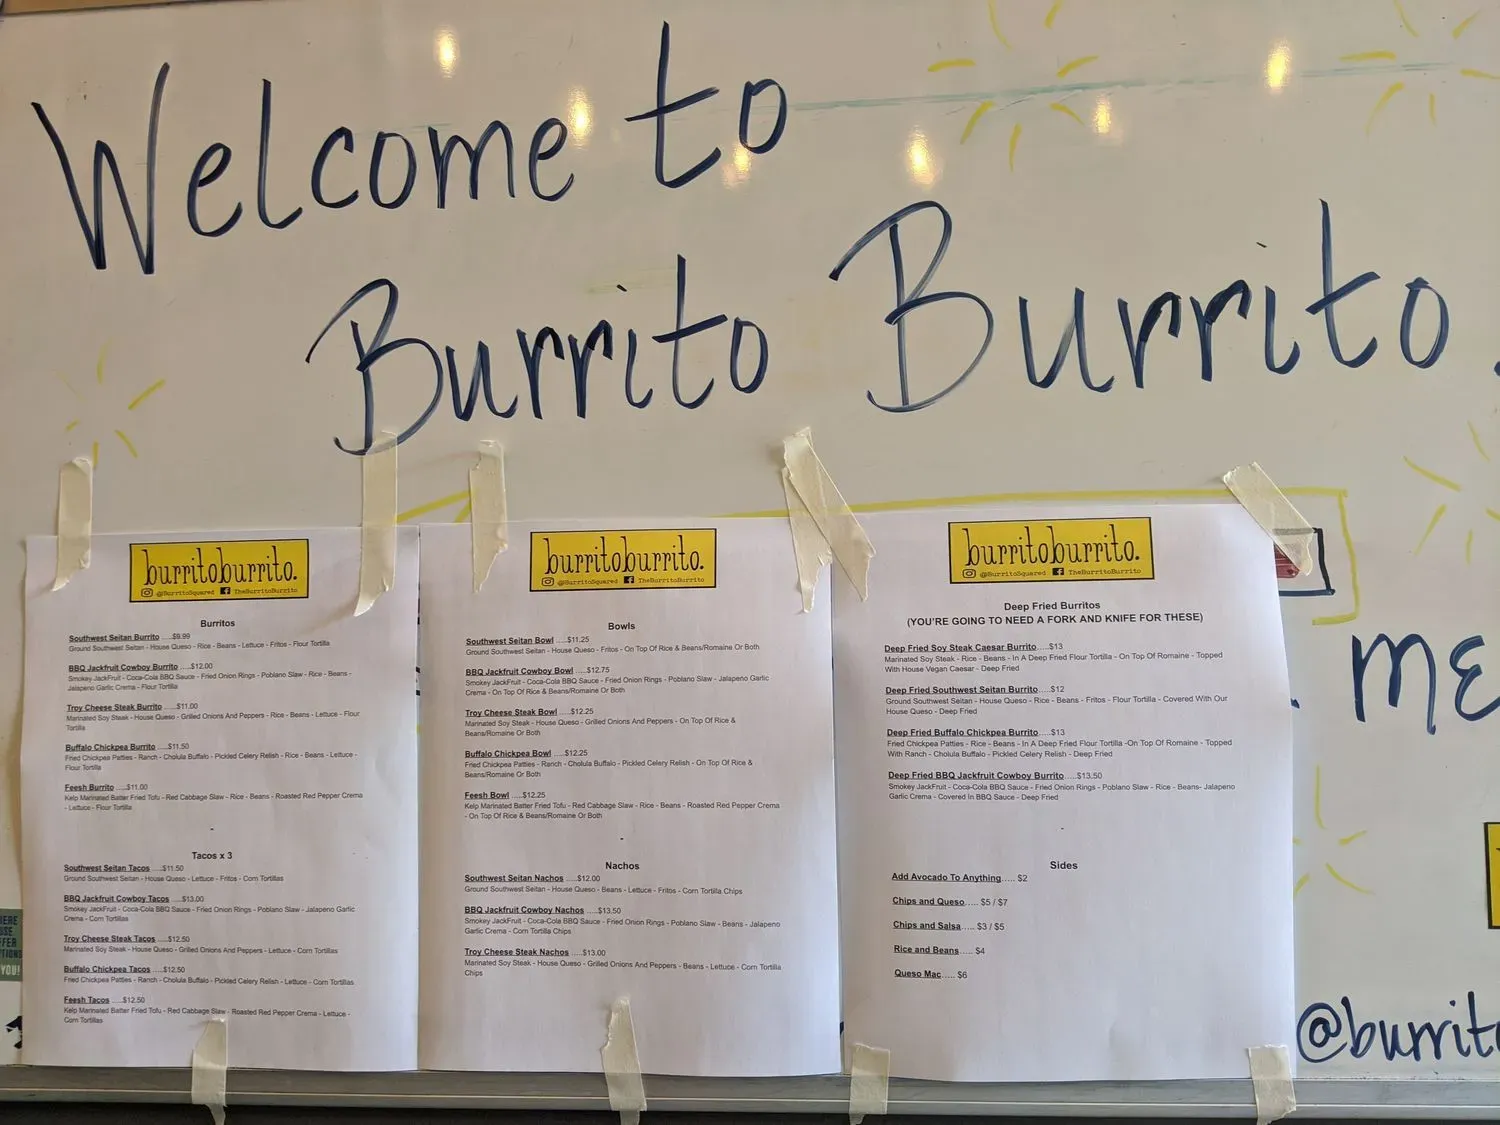 Welcome to
Burrito Burrito.
burritoburrito.
@BurritoSquared TheBurritoBurrito
Burritos
Southwest Seitan Burrito .....$9.99
Ground Southwest Seitan - House Queso - Rice - Beans - Lettuce - Fritos - Flour Tortilla
BBQ Jackfruit Cowboy Burrito .....$12.00
Smokey JackFruit - Coca-Cola BBQ Sauce - Fried Onion Rings - Poblano Slaw - Rice - Beans -
Jalapeno Garlic Crema - Flour Tortilla
Troy Cheese Steak Burrito .....$11.00
Marinated Soy Steak - House Queso - Grilled Onions And Peppers - Rice - Beans - Lettuce - Flour
Tortilla
Buffalo Chickpea Burrito .....$11.50
Fried Chickpea Patties - Ranch - Cholula Buffalo - Pickled Celery Relish - Rice - Beans - Lettuce -
Flour Tortilla
Feesh Burrito .....$11.00
Kelp Marinated Batter Fried Tofu - Red Cabbage Slaw - Rice - Beans - Roasted Red Pepper Crema
- Lettuce - Flour Tortilla
-
Tacos x 3
Southwest Seitan Tacos .....$11.50
Ground Southwest Seitan - House Queso - Lettuce - Fritos - Corn Tortillas
BBQ Jackfruit Cowboy Tacos .....$13.00
Smokey JackFruit - Coca-Cola BBQ Sauce - Fried Onion Rings - Poblano Slaw - Jalapeno Garlic
Crema - Corn Tortillas
Troy Cheese Steak Tacos .....$12.50
Marinated Soy Steak - House Queso - Grilled Onions And Peppers - Lettuce - Corn Tortillas
Buffalo Chickpea Tacos .....$12.50
Fried Chickpea Patties - Ranch - Cholula Buffalo - Pickled Celery Relish - Lettuce - Corn Tortillas
Feesh Tacos .....$12.50
Kelp Marinated Batter Fried Tofu - Red Cabbage Slaw - Roasted Red Pepper Crema - Lettuce -
Corn Tortillas
burritoburrito.
@BurritoSquared TheBurritoBurrito
Bowls
Southwest Seitan Bowl .....$11.25
Ground Southwest Seitan - House Queso - Fritos - On Top Of Rice & Beans/Romaine Or Both
BBQ Jackfruit Cowboy Bowl .....$12.75
Smokey JackFruit - Coca-Cola BBQ Sauce - Fried Onion Rings - Poblano Slaw - Jalapeno Garlic
Crema - On Top Of Rice & Beans/Romaine Or Both
Troy Cheese Steak Bowl .....$12.25
Marinated Soy Steak - House Queso - Grilled Onions And Peppers - On Top Of Rice &
Beans/Romaine Or Both
Buffalo Chickpea Bowl .....$12.25
Fried Chickpea Patties - Ranch - Cholula Buffalo - Pickled Celery Relish - On Top Of Rice &
Beans/Romaine Or Both
Feesh Bowl .....$12.25
Kelp Marinated Batter Fried Tofu - Red Cabbage Slaw - Rice - Beans - Roasted Red Pepper Crema
- On Top Of Rice & Beans/Romaine Or Both
-
Nachos
Southwest Seitan Nachos .....$12.00
Ground Southwest Seitan - House Queso - Beans - Lettuce - Fritos - Corn Tortilla Chips
BBQ Jackfruit Cowboy Nachos .....$13.50
Smokey JackFruit - Coca-Cola BBQ Sauce - Fried Onion Rings - Poblano Slaw - Beans - Jalapeno
Garlic Crema - Corn Tortilla Chips
Troy Cheese Steak Nachos .....$13.00
Marinated Soy Steak - House Queso - Grilled Onions And Peppers - Beans - Lettuce - Corn Tortilla
Chips
burritoburrito.
@BurritoSquared TheBurritoBurrito
Deep Fried Burritos
(YOU'RE GOING TO NEED A FORK AND KNIFE FOR THESE)
Deep Fried Soy Steak Caesar Burrito.....$13
Marinated Soy Steak - Rice - Beans - In A Deep Fried Flour Tortilla - On Top Of Romaine - Topped
With House Vegan Caesar - Deep Fried
Deep Fried Southwest Seitan Burrito.....$12
Ground Southwest Seitan - House Queso - Rice - Beans - Fritos - Flour Tortilla - Covered With Our
House Queso - Deep Fried
Deep Fried Buffalo Chickpea Burrito.....$13
Fried Chickpea Patties - Rice - Beans - In A Deep Fried Flour Tortilla -On Top Of Romaine - Topped
With Ranch - Cholula Buffalo - Pickled Celery Relish - Deep Fried
Deep Fried BBQ Jackfruit Cowboy Burrito.....$13.50
Smokey JackFruit - Coca-Cola BBQ Sauce - Fried Onion Rings - Poblano Slaw - Rice - Beans- Jalapeno
Garlic Crema - Covered In BBQ Sauce - Deep Fried
-
Sides
Add Avocado To Anything..... $2
Chips and Queso..... $5 / $7
Chips and Salsa..... $3 / $5
Rice and Beans..... $4
Queso Mac..... $6
ME
@burrito
YOU!